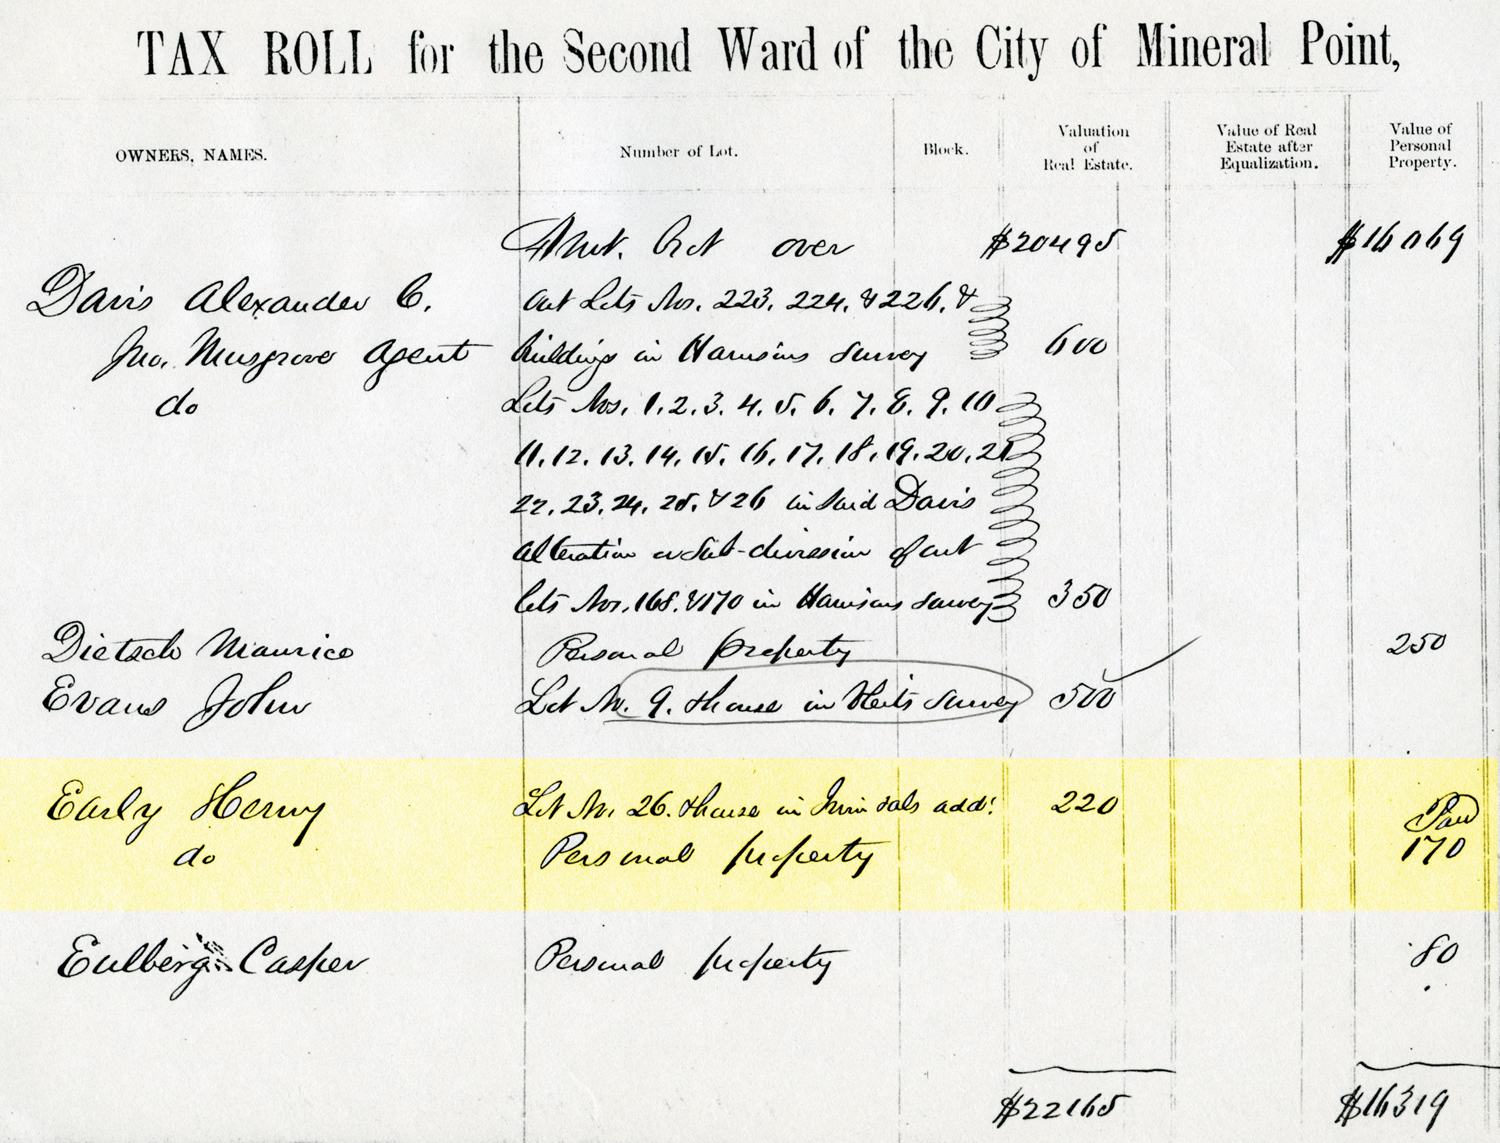 TAX ROLL for the Second Ward of the City of Mineral Point,
OWNERS, NAMES. Number of Lot. Block. Valuation of Real Estate. Value of Real Estate after Equalization. Value of Personal Property.
Amt. Brt over $20495 $16069
Davis Alexander C. out Lots Nos. 223, 224, & 226, &
Jno. Musgrove Agent buildings in Harrisons survey 600
do Lots Nos. 1. 2. 3. 4. 5. 6. 7. 8. 9. 10
11. 12. 13. 14. 15. 16. 17. 18. 19. 20. 21
22. 23. 24. 25. & 26 in said Davis
alteration or sub-division of out
lots Nos. 168. & 170 in Harrisons survey 350
Dietsch Maurice Personal property 250
Evans John Lot No. 9. & house in survey 500
Early Henry Lot No. 26. & house in add! 220
do Personal property 170
Eulberg Casper Personal property 80
$22165 $16319